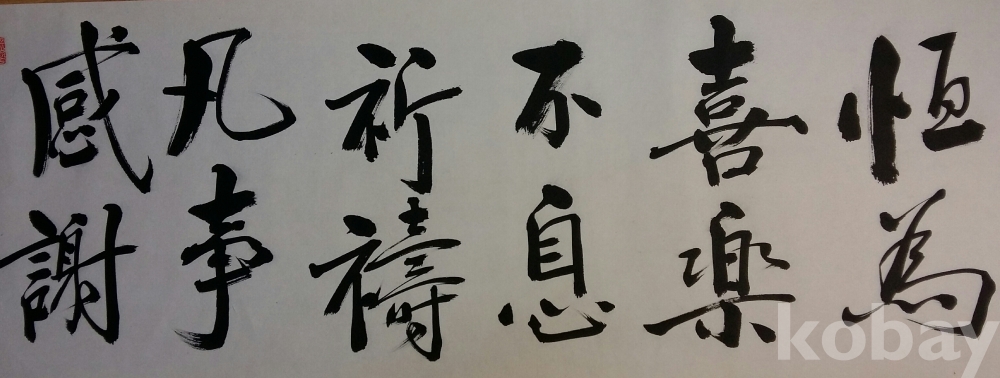 恒為
喜楽
不息
祈禱
凡事
感謝
kobay